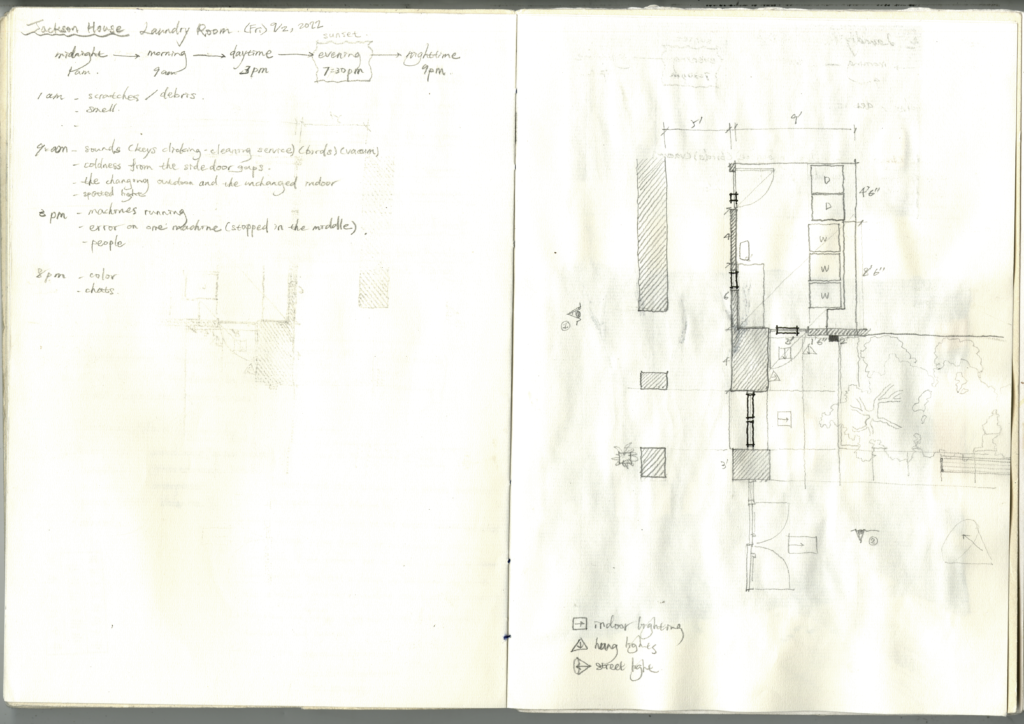 Jackson House Laundry Room. (Fri) 9/2, 2022
sunset
midnight → morning → daytime → evening → nighttime
1am. 9am 3pm 7:30pm 9pm.
1 am - scratches / debris.
- smell.
-
9 am - sounds (keys clinking - cleaning service) (birds) (vacuum)
- coldness from the side door gaps.
- the changing outdoor and the unchanged indoor
- spotted lights
3 pm - machines running
- error on one machine (stopped in the middle).
- people
8 pm - color
- chats.
5' 9'
D
D
4'6"
W
W
W
8'6"
4'
3'
indoor lighting
hang lights
street light